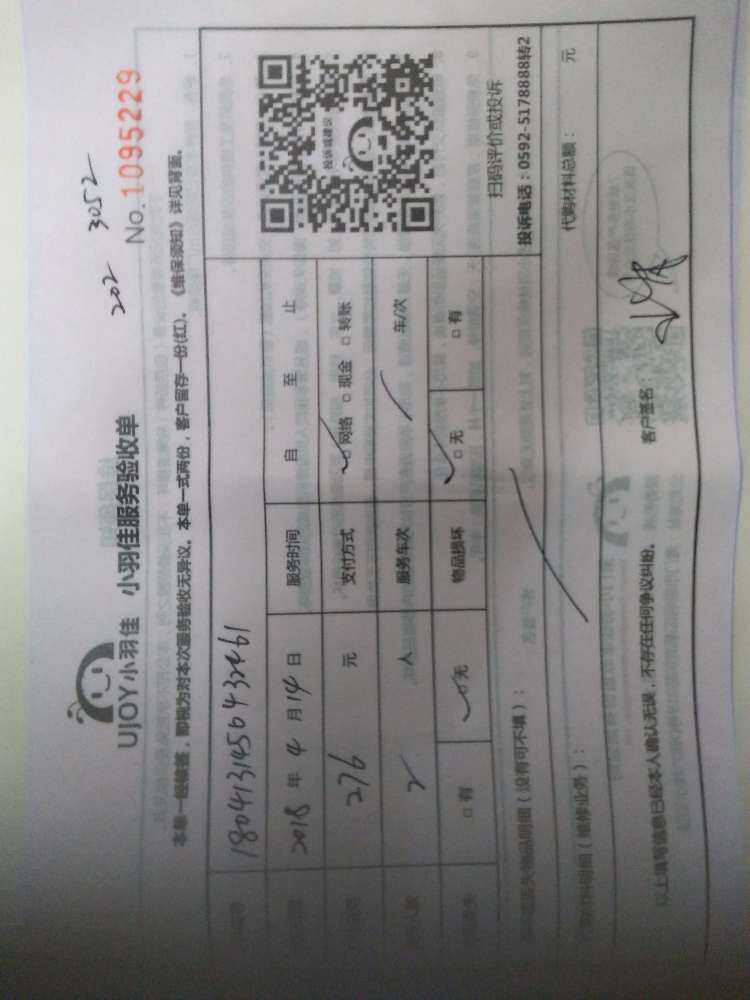 202 3052
UJOY小羽佳 小羽佳服务验收单 No. 1095229
本单一经核签，即视为对本次服务验收无异议。本单一式两份，客户留存一份(红)。《维保须知》详见背面。
2018 年 4 月 14 日 服务时间 自 至 止
276 元 支付方式 □ 网络 □ 现金 □ 转账
2 人 服务车次 车/次
□ 有 □ 无 物品损坏 □ 无 □ 有
投诉或建议
扫码评价或投诉
投诉电话：0592-5178888转2
物品明细（没有可不填）：
明细（维修业务）： 代购材料总额： 元
以上填写信息已经本人确认无误，不存在任何争议纠纷。 客户签名：